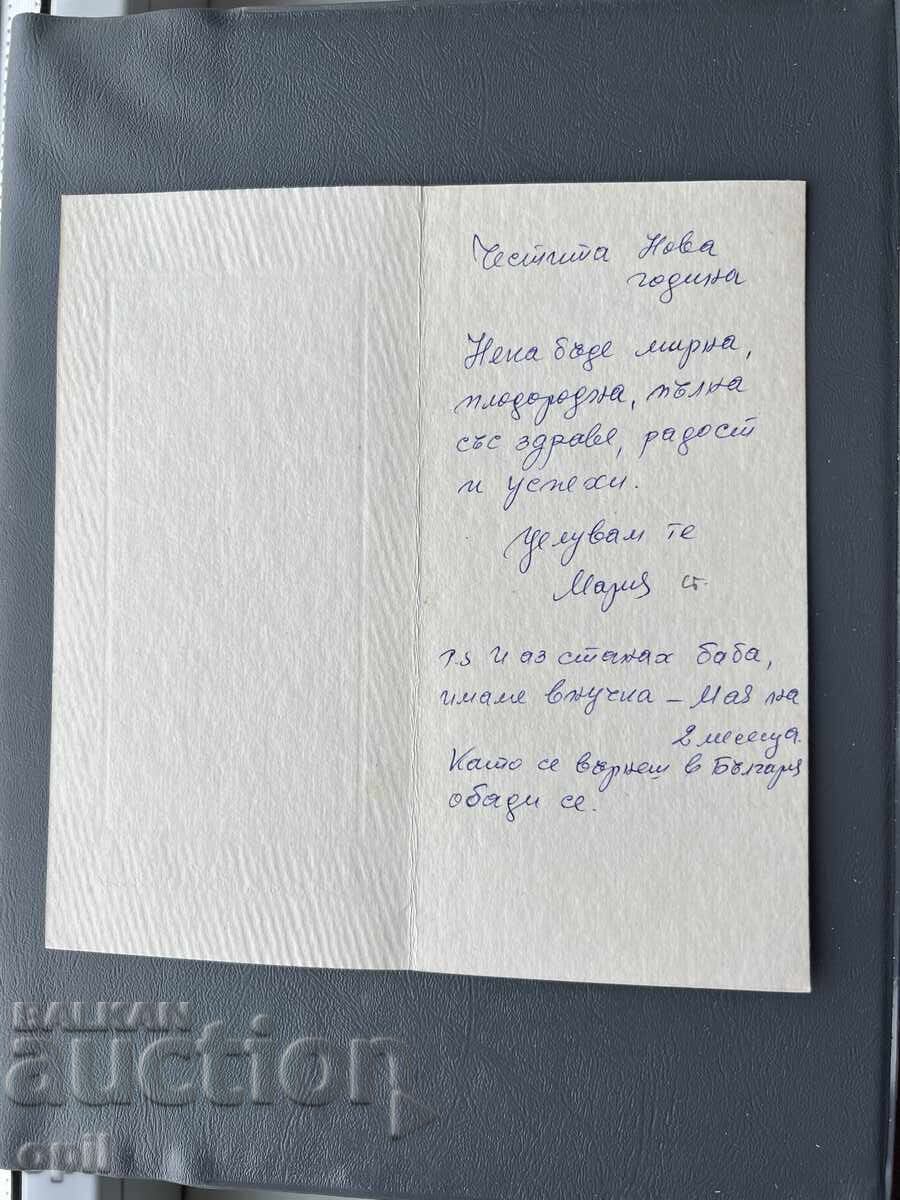 Честита Нова
година
Нека бъде мирна,
плодородна, пълна
със здраве, радост
и успехи.
Целувам те
Мария Ст.
P.S И аз станах баба,
имаме внучка – Мая на
2 месеца.
Като се върнеш в България
обади се.
BALKAN
auction
opil